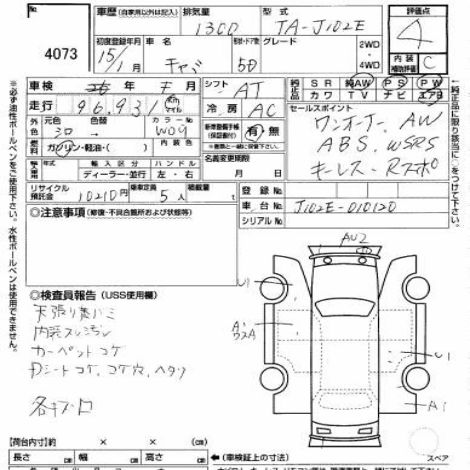 4073
車歴 (自家用以外は記入)
排気量 1300
型式 TA-J102E
評価点 4
初度登録年月 15/1
車名 キャミ
ドア数 5D
グレード
2WD・4WD
内装補助評価 C
車検 年 月
シフト AT
純正品 SR 純AW PS PW
カワ TV ナビ エアB
走行 96,931 km マイル
冷房 AC
セールスポイント
ワンオーナー AW
ABS WSRS
キーレス・Rスポ
外色 元色 シロ 色替
カラーNo W09
燃料 ガソリン・軽油・( )
内装色
新車整備手帳 (保証書付) 有・無
輸入車 輸入区分 ハンドル
ディーラー・並行 左・右
名義変更期限 月 日
リサイクル預託金 10210円
乗車定員 5人
積載量
登録No.
車台No. J102E-010120
シリアルNo.
◎注意事項 (修復・不具合箇所および状態等)
◎検査員報告 (USS使用欄)
天張り集ハミ
内装スレキズ
カーペットコゲ
Dシートコゲ、コゲ穴、ヘタリ
各キズ
AU2
U1
A1
【荷台内寸】 × ×
長さ cm 幅 cm 高さ cm
←(車検証上の寸法)
スペア
※必ず油性ボールペンをご使用下さい。水性ボールペンは使用できません。
純正品に限り該当に○をつけて下さい。